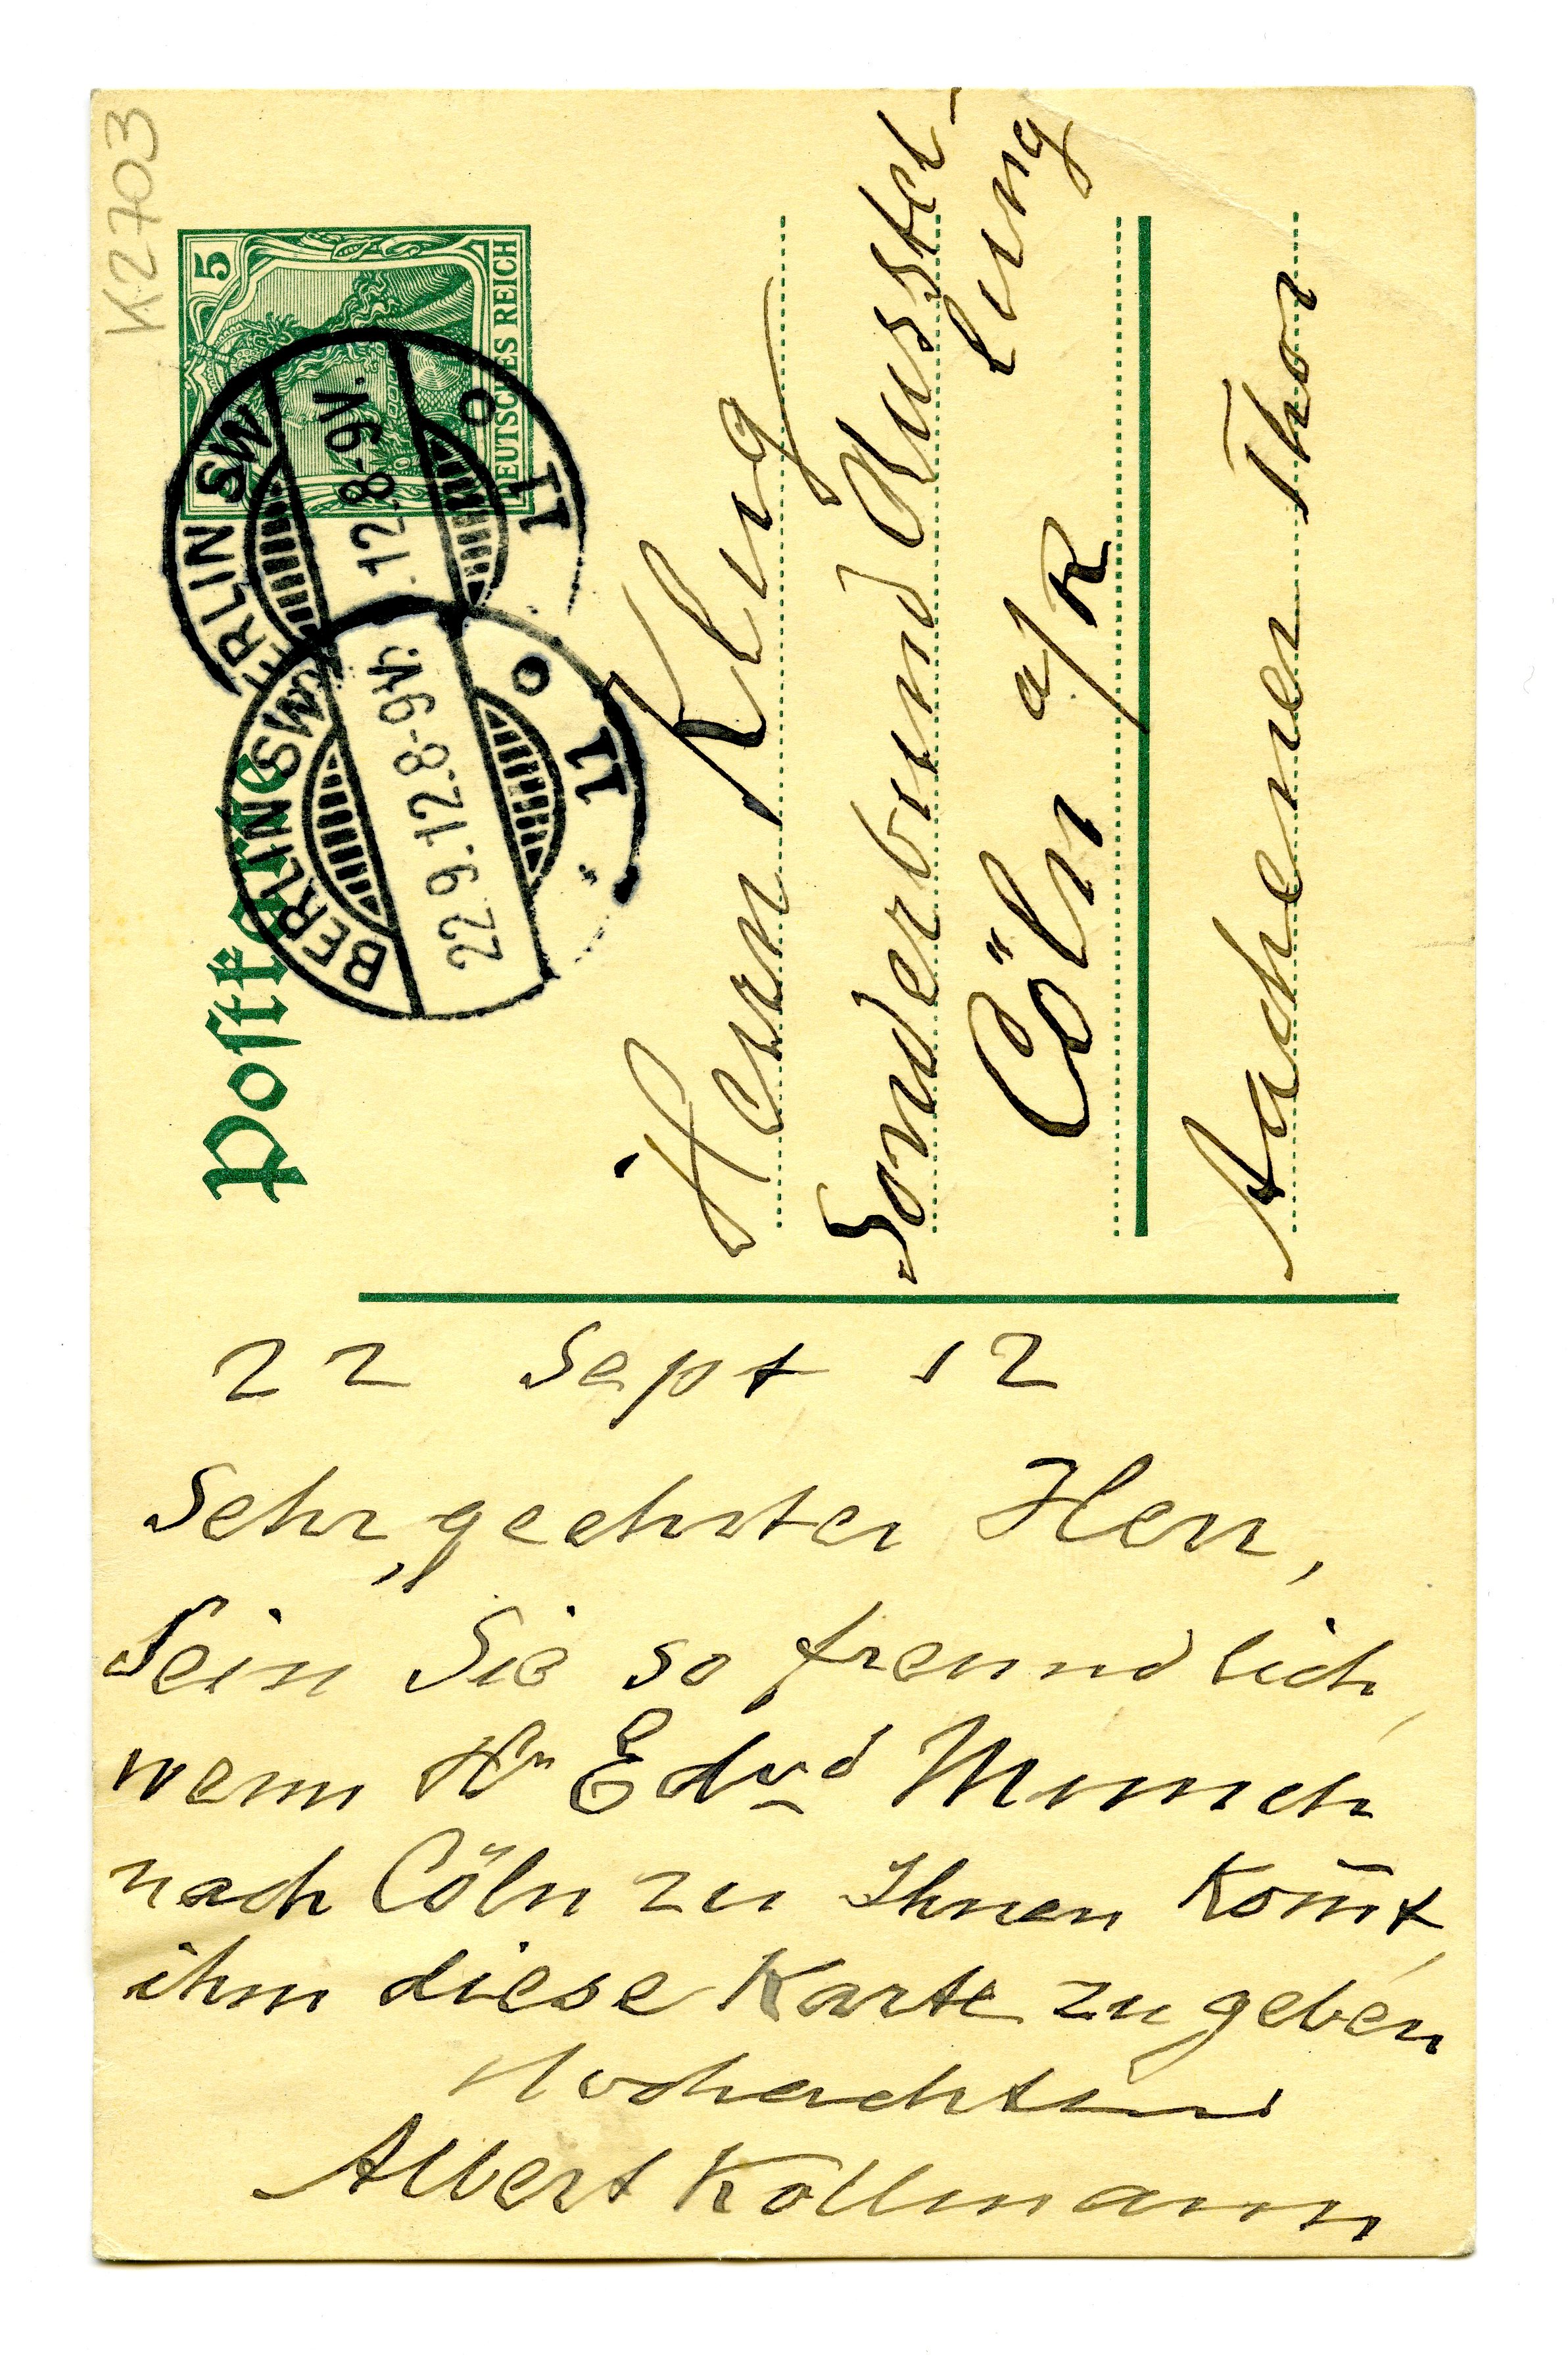 K2703
Postkarte
5
DEUTSCHES REICH
BERLIN SW
12.8-9V.
11
BERLIN SW
22.9.12.8-9V.
11
Herrn Klug
Sonderbund Ausstel-
lung
Cöln a/R
Aachener Thor
22 Sept 12
Sehr geehrter Herr,
Sein Sie so freundlich,
wenn Hrn Edvd Munch
nach Cöln zu Ihnen kom̅t,
ihm diese Karte zu geben
Hochachtend
Albert Kollmann